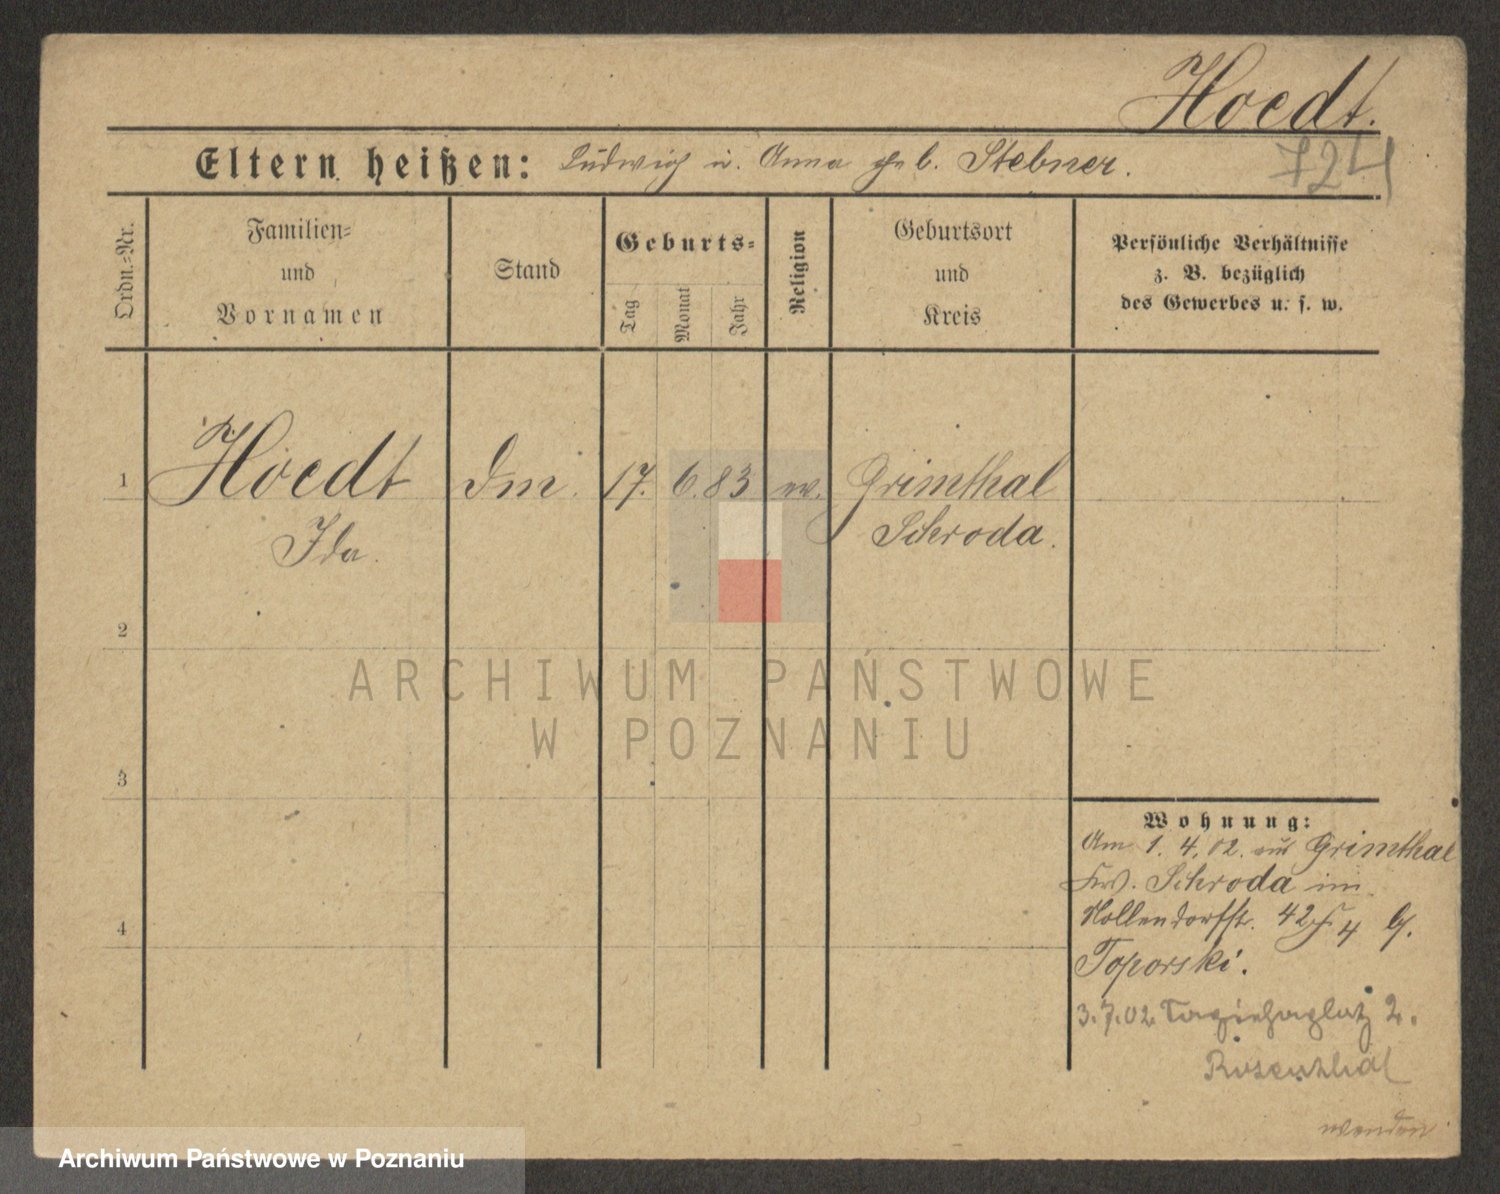 Hoedt.
724
Eltern heißen: Ludwig u. Anna geb. Stebner.
Ordn.-Nr.
Familien- und Vornamen
Stand
Geburts-
Tag
Monat
Jahr
Religion
Geburtsort und Kreis
Persönliche Verhältnisse
z. B. bezüglich
des Gewerbes u. s. w.
1 Hoedt 17. 6. 83 Grimthal
Ida. Schroda.
2
3
4
ARCHIWUM PAŃSTWOWE
W POZNANIU
Wohnung:
Am 1. 4. 02. aus Grimthal
Krs. Schroda im
Nollendorfstr. 42
Toporski.
3.7.02 2.
Rosenthal
wenden
Archiwum Państwowe w Poznaniu